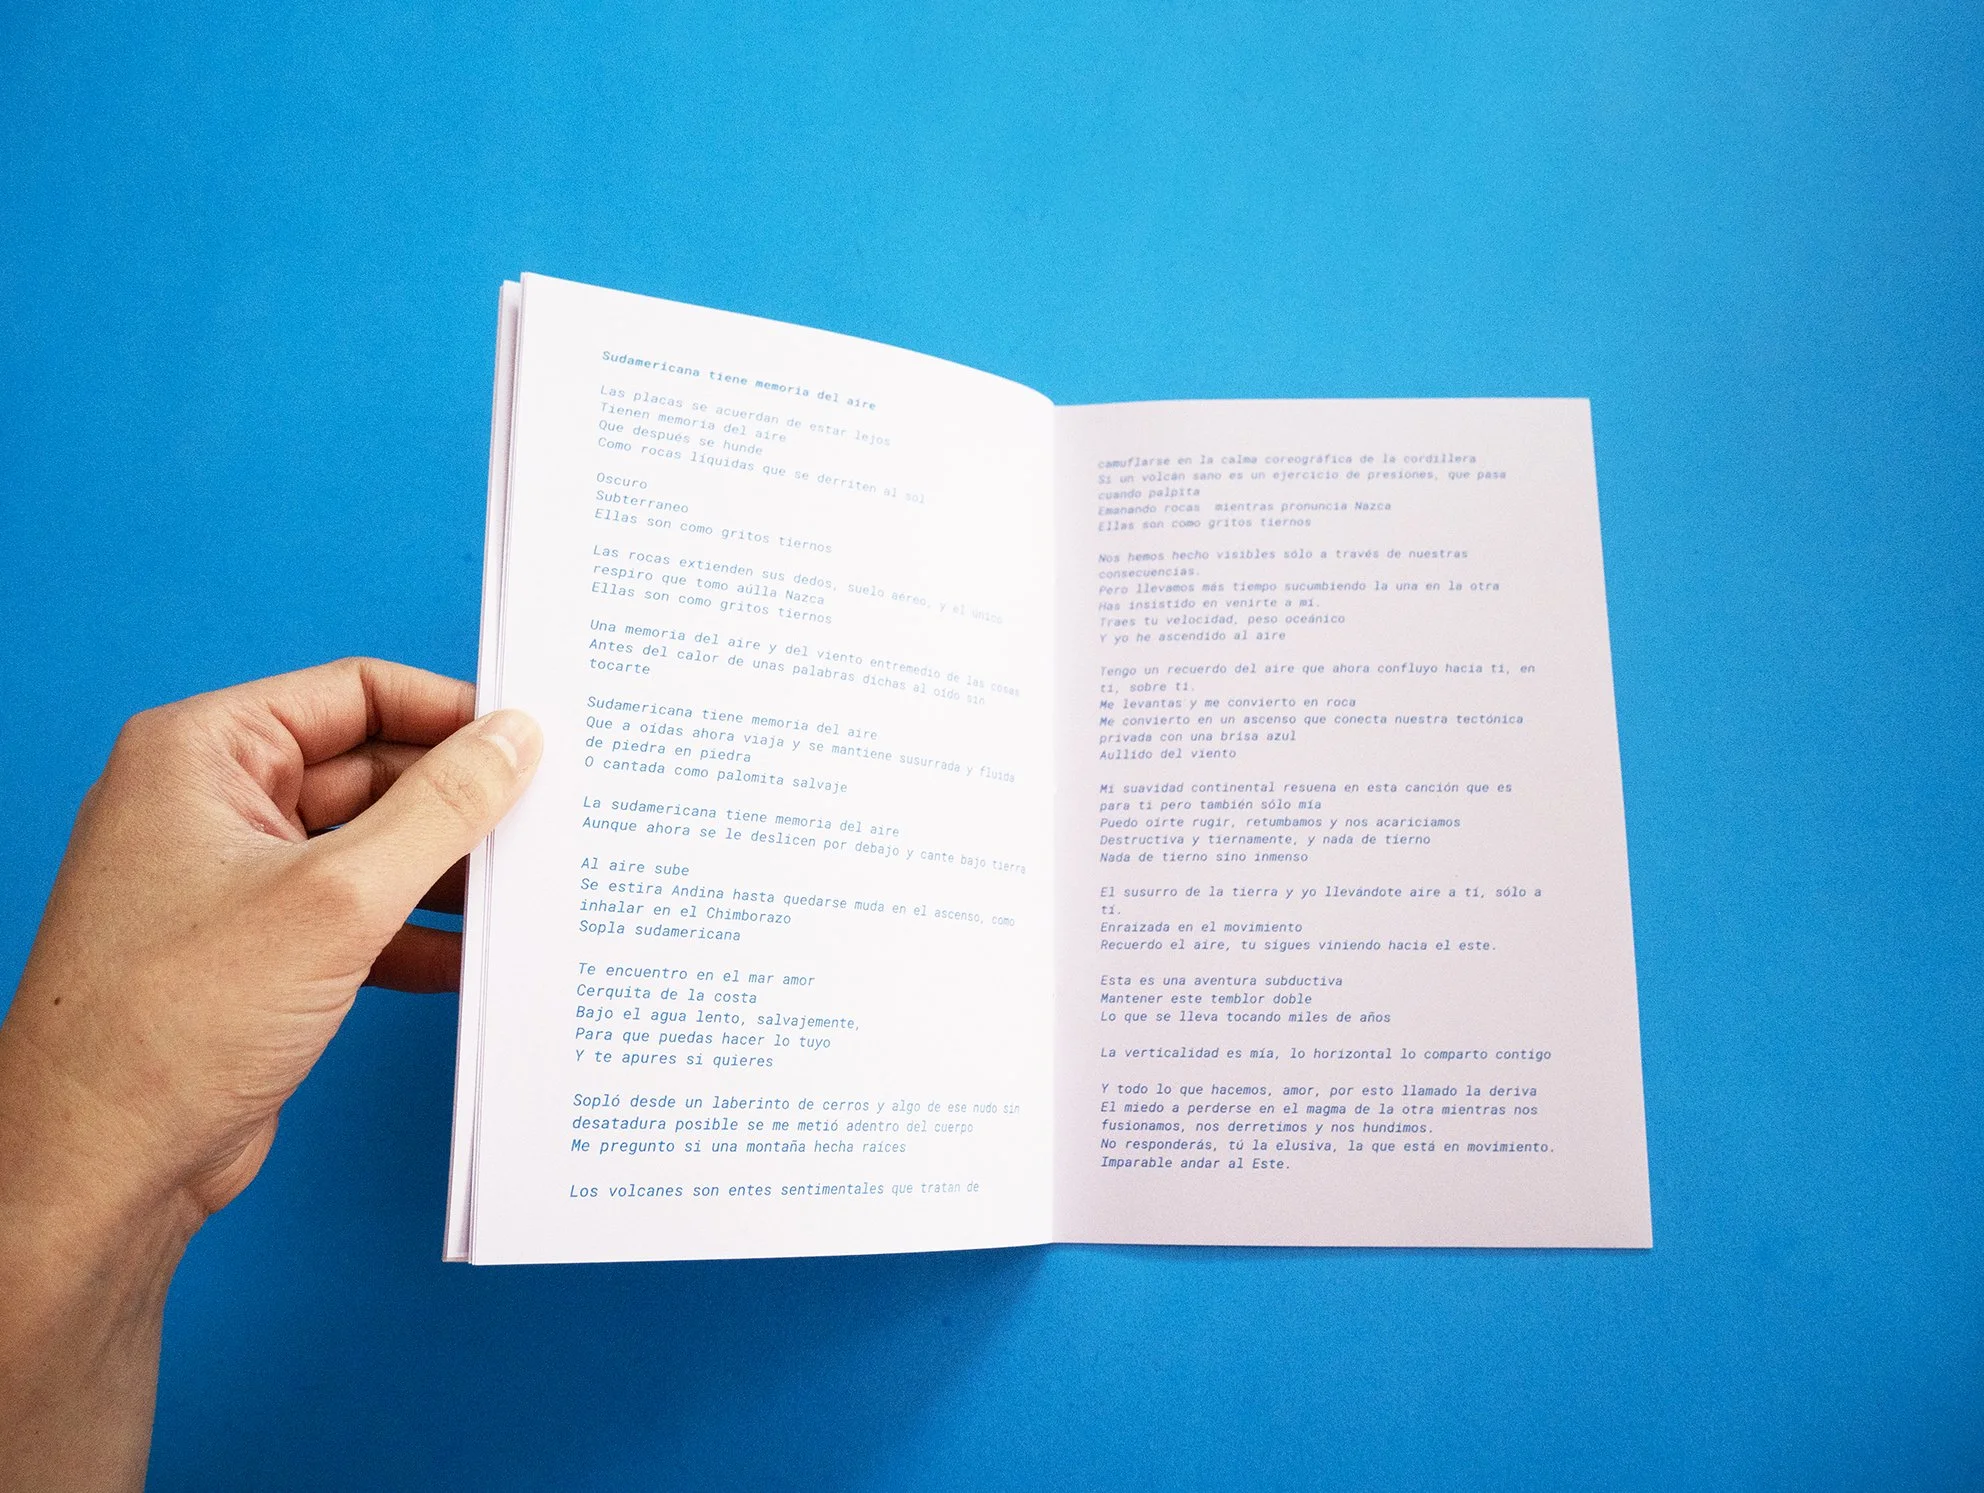 Sudamericana tiene memoria del aire
Las placas se acuerdan de estar lejos
Tienen memoria del aire
Que después se hunde
Como rocas líquidas que se derriten al sol
Oscuro
Subterraneo
Ellas son como gritos tiernos
Las rocas extienden sus dedos, suelo aereo, y el unico
respiro que tomo aúlla Nazca
Ellas son como gritos tiernos
Una memoria del aire y del viento entremedio de las cosas
Antes del calor de unas palabras dichas al oído sin
tocarte
Sudamericana tiene memoria del aire
Que a oídas ahora viaja y se mantiene susurrada y fluida
de piedra en piedra
O cantada como palomita salvaje
La sudamericana tiene memoria del aire
Aunque ahora se le deslicen por debajo y cante bajo tierra
Al aire sube
Se estira Andina hasta quedarse muda en el ascenso, como
inhalar en el Chimborazo
Sopla sudamericana
Te encuentro en el mar amor
Cerquita de la costa
Bajo el agua lento, salvajemente,
Para que puedas hacer lo tuyo
Y te apures si quieres
Sopló desde un laberinto de cerros y algo de ese nudo sin
desatadura posible se me metió adentro del cuerpo
Me pregunto si una montaña hecha raíces
Los volcanes son entes sentimentales que tratan de
camuflarse en la calma coreográfica de la cordillera
Si un volcán sano es un ejercicio de presiones, que pasa
cuando palpita
Emanando rocas mientras pronuncia Nazca
Ellas son como gritos tiernos
Nos hemos hecho visibles sólo a través de nuestras
consecuencias.
Pero llevamos más tiempo sucumbiendo la una en la otra
Has insistido en venirte a mí.
Traes tu velocidad, peso oceánico
Y yo he ascendido al aire
Tengo un recuerdo del aire que ahora confluyo hacia ti, en
ti, sobre ti.
Me levantas y me convierto en roca
Me convierto en un ascenso que conecta nuestra tectónica
privada con una brisa azul
Aullido del viento
Mi suavidad continental resuena en esta canción que es
para ti pero también sólo mía
Puedo oírte rugir, retumbamos y nos acariciamos
Destructiva y tiernamente, y nada de tierno
Nada de tierno sino inmenso
El susurro de la tierra y yo llevándote aire a tí, sólo a
tí.
Enraizada en el movimiento
Recuerdo el aire, tu sigues viniendo hacia el este.
Esta es una aventura subductiva
Mantener este temblor doble
Lo que se lleva tocando miles de años
La verticalidad es mía, lo horizontal lo comparto contigo
Y todo lo que hacemos, amor, por esto llamado la deriva
El miedo a perderse en el magma de la otra mientras nos
fusionamos, nos derretimos y nos hundimos.
No responderás, tú la elusiva, la que está en movimiento.
Imparable andar al Este.